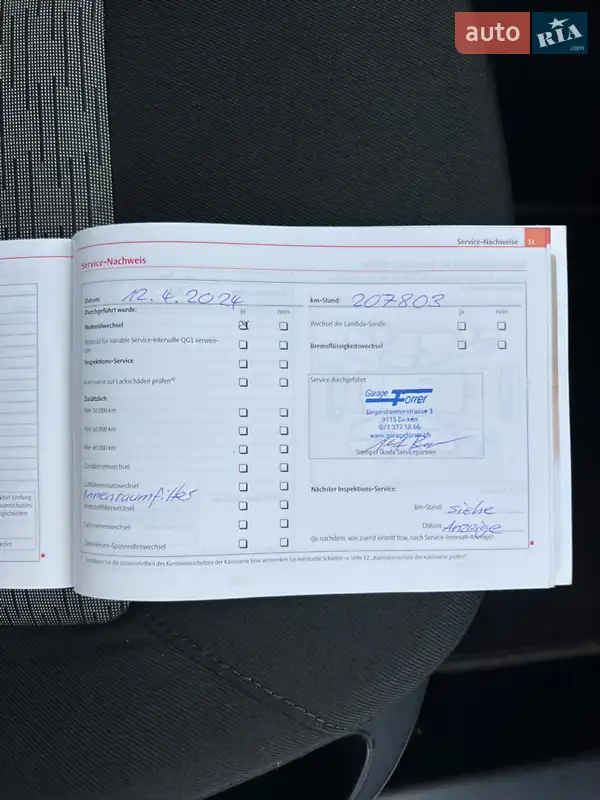 auto RIA.com
Service-Nachweise 31
Service-Nachweis
Datum: 12.4.2024
km-Stand: 207803
Durchgeführt wurde: ja nein
ja nein
Motorölwechsel
Wechsel der Lambda-Sonde
Motoröl für variable Service-Intervalle QG1 verwen-
det
Bremsflüssigkeitswechsel
Inspektions-Service
Karosserie auf Lackschäden prüfen
Service durchgeführt
Zusätzlich
Garage Forrer
Degersheimerstrasse 3
9115 Dicken
071 377 18 66
www.garageforrer.ch
Stempel Škoda Servicepartner
Alle 30 000 km
Alle 60 000 km
Alle 90 000 km
Zündkerzenwechsel
Luftfiltereinsatzwechsel
Innenraumfilter
Kraftstofffilterwechsel
Zahnriemenwechsel
Zahnriemen-Spannrollenwechsel
Nächster Inspektions-Service:
km-Stand: siehe
Datum: Anzeige
(je nachdem, was zuerst eintritt bzw. nach Service-Intervall-Anzeige)
Bestätigen Sie die Unversehrtheit des Korrosionsschutzes der Karosserie bzw. vermerken Sie eventuelle Schäden ⇒ Seite 52, „Korrosionsschutz der Karosserie prüfen“.